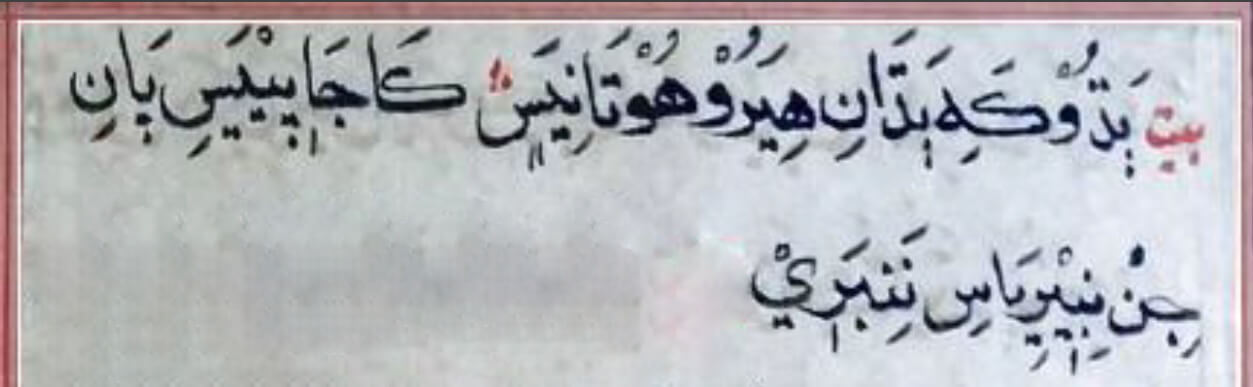 بيت بَدُّوْ كَهِ بَدَّانِ هِيَرُوْ هُوْتَانِيَسٍ كَا جَا پِيْيَسِ بَانِ
جِنُ نِبِيْرِيَاسِ نَنِبَرِيْ